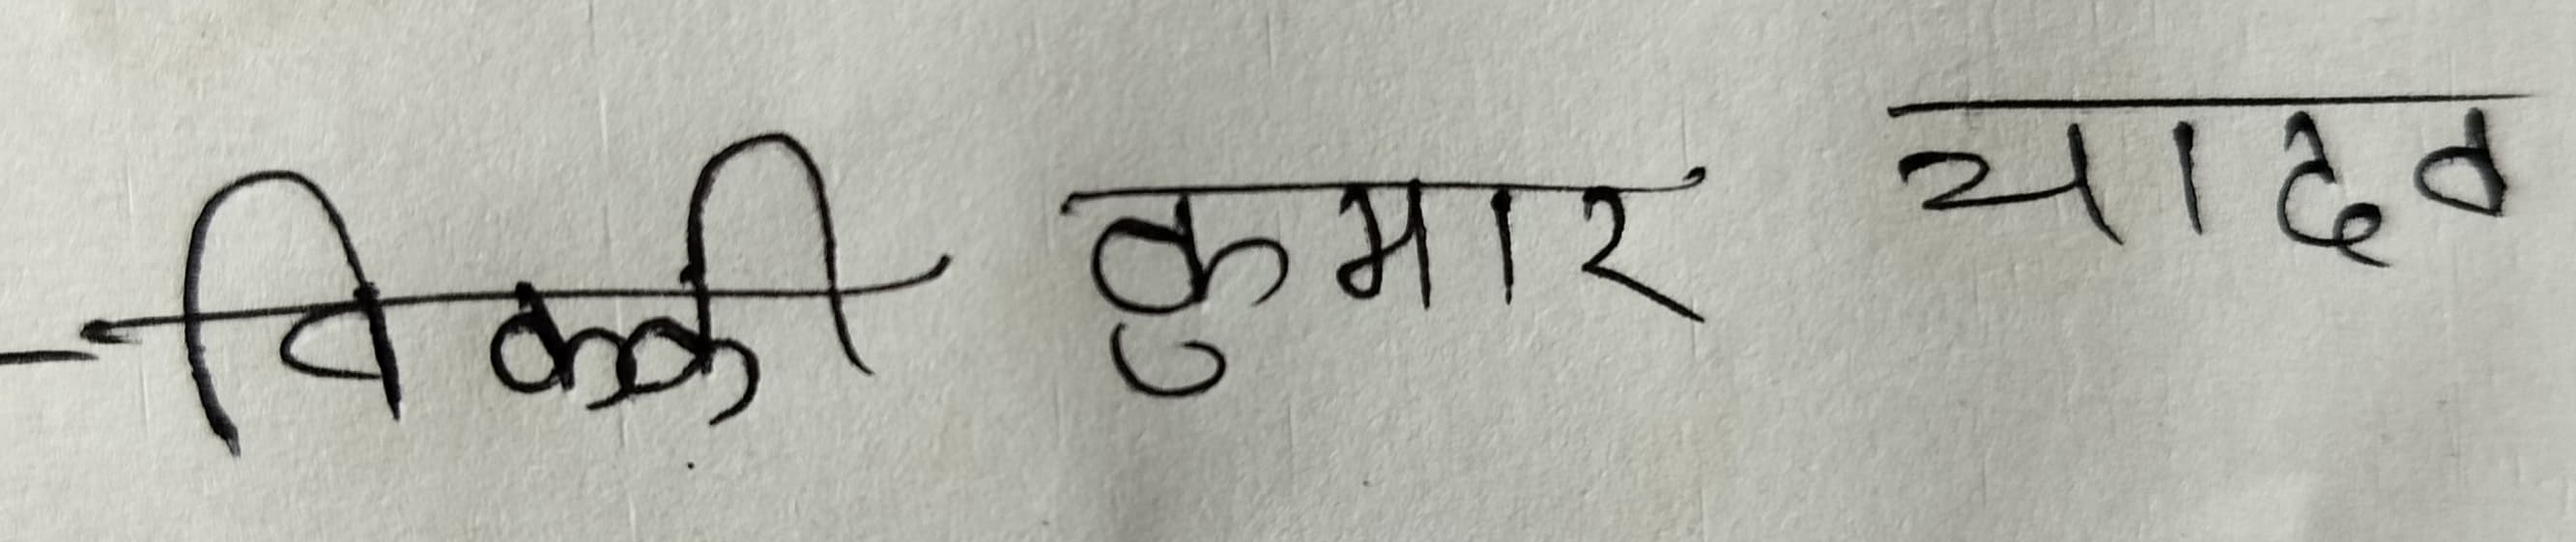 विक्की कुमार यादव